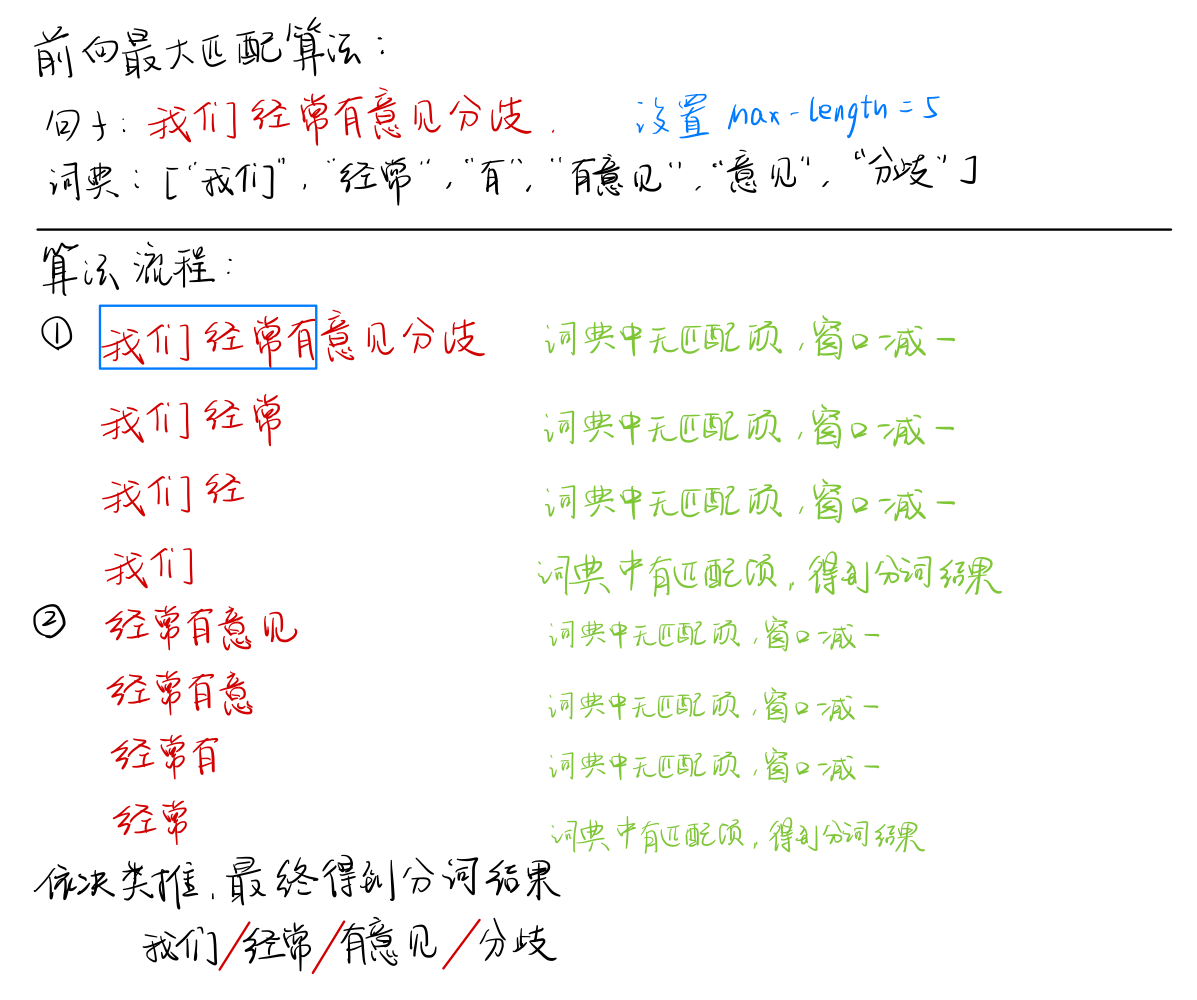 前向最大匹配算法：
句子：我们经常有意见分歧． 设置 max-length=5
词典：["我们"，"经常"，"有"，"有意见"，"意见"，"分歧"]
算法流程：
① 我们经常有意见分歧 词典中无匹配项，窗口减一
我们经常 词典中无匹配项，窗口减一
我们经 词典中无匹配项，窗口减一
我们 词典中有匹配项，得到分词结果
② 经常有意见 词典中无匹配项，窗口减一
经常有意 词典中无匹配项，窗口减一
经常有 词典中无匹配项，窗口减一
经常 词典中有匹配项，得到分词结果
依次类推，最终得到分词结果
我们/经常/有意见/分歧